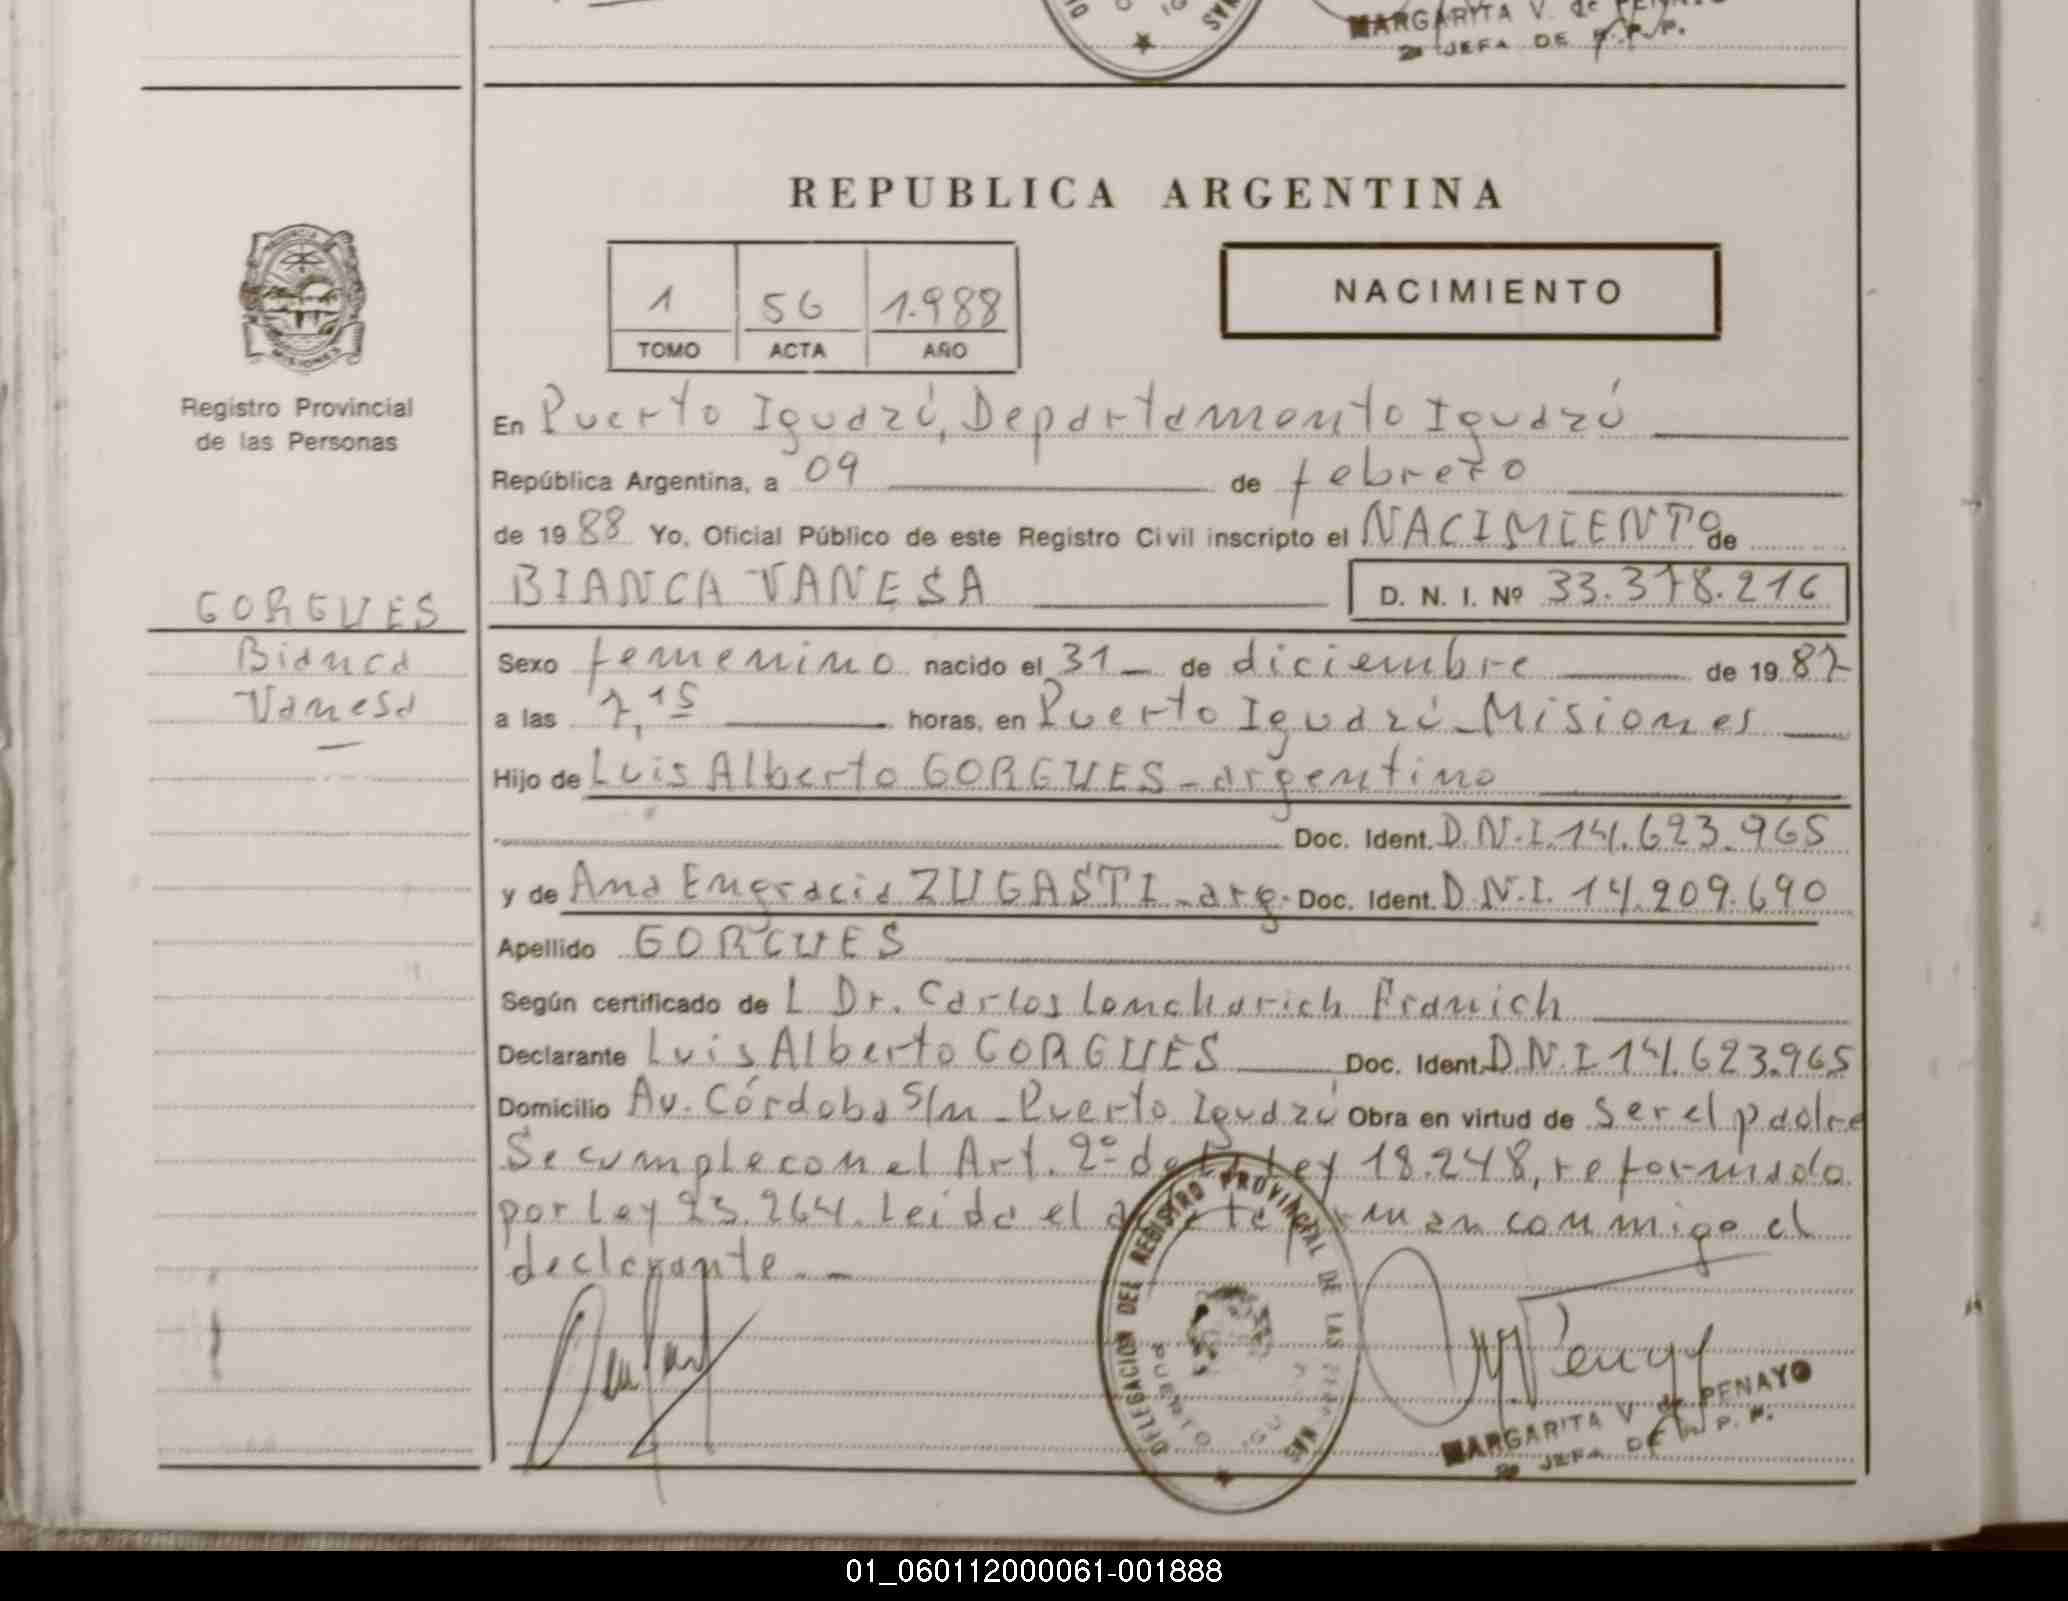 MARGARITA V. de
2a JEFA DE R.P.P.
REPUBLICA ARGENTINA
1 56 1.988
TOMO ACTA AÑO
NACIMIENTO
Registro Provincial
de las Personas
GORGUES
Bianca
Vanesa
En Puerto Iguazú, Departamento Iguazú
República Argentina, a 09 de febrero
de 1988 Yo, Oficial Público de este Registro Civil inscripto el NACIMIENTO de
BIANCA VANESA D. N. I. Nº 33.378.216
Sexo femenino nacido el 31 de diciembre de 1987
a las 7,15 horas, en Puerto Iguazú - Misiones
Hijo de Luis Alberto GORGUES - argentino
Doc. Ident. D.N.I. 14.623.965
y de Ana Engracia ZUGASTI - arg. Doc. Ident. D.N.I. 14.209.690
Apellido GORGUES
Según certificado de L Dr. Carlos Franich
Declarante Luis Alberto GORGUES Doc. Ident. D.N.I 14.623.965
Domicilio Av. Córdoba S/n - Puerto Iguazú Obra en virtud de ser el padre
Se cumple con el Art. 2º de la Ley 18.248, reformado
por Ley 23.264. Leida el acta firman conmigo el
declarante.-
DELEGACION DEL REGISTRO PROVINCIAL DE LAS
PUERTO
MARGARITA V. de PENAYO
2a JEFA DE R.P.P.
01_060112000061-001888